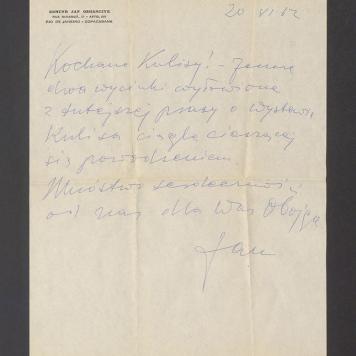 EDMUND JAN OSMAŃCZYK
RIO DE JANEIRO - COPACABANA
20 VI 62
Kochane Kulisy! -
dwa wycinki wyłowione
z tutejszej prasy o wystawie
Kulisa ciągle cieszącej
się powodzeniem.
Mnóstwo serdeczności
od nas dla Was Obojga
Jan